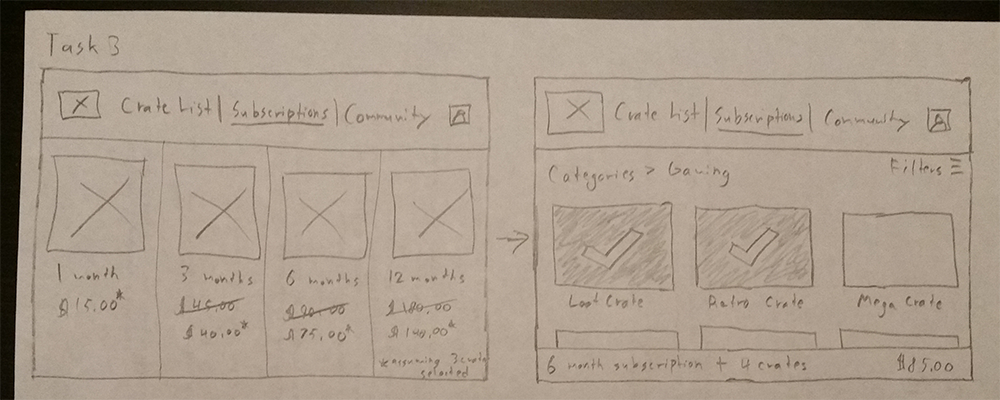 Task 3
Crate List | Subscriptions | Community
1 month
$15.00*
3 months
$45.00
$40.00*
6 months
$90.00
$75.00*
12 months
$180.00
$140.00*
*assuming 3 crates
selected
Crate List | Subscriptions | Community
Categories > Gaming
Filters
Loot Crate
Retro Crate
Mega Crate
6 month subscription + 4 crates
$85.00